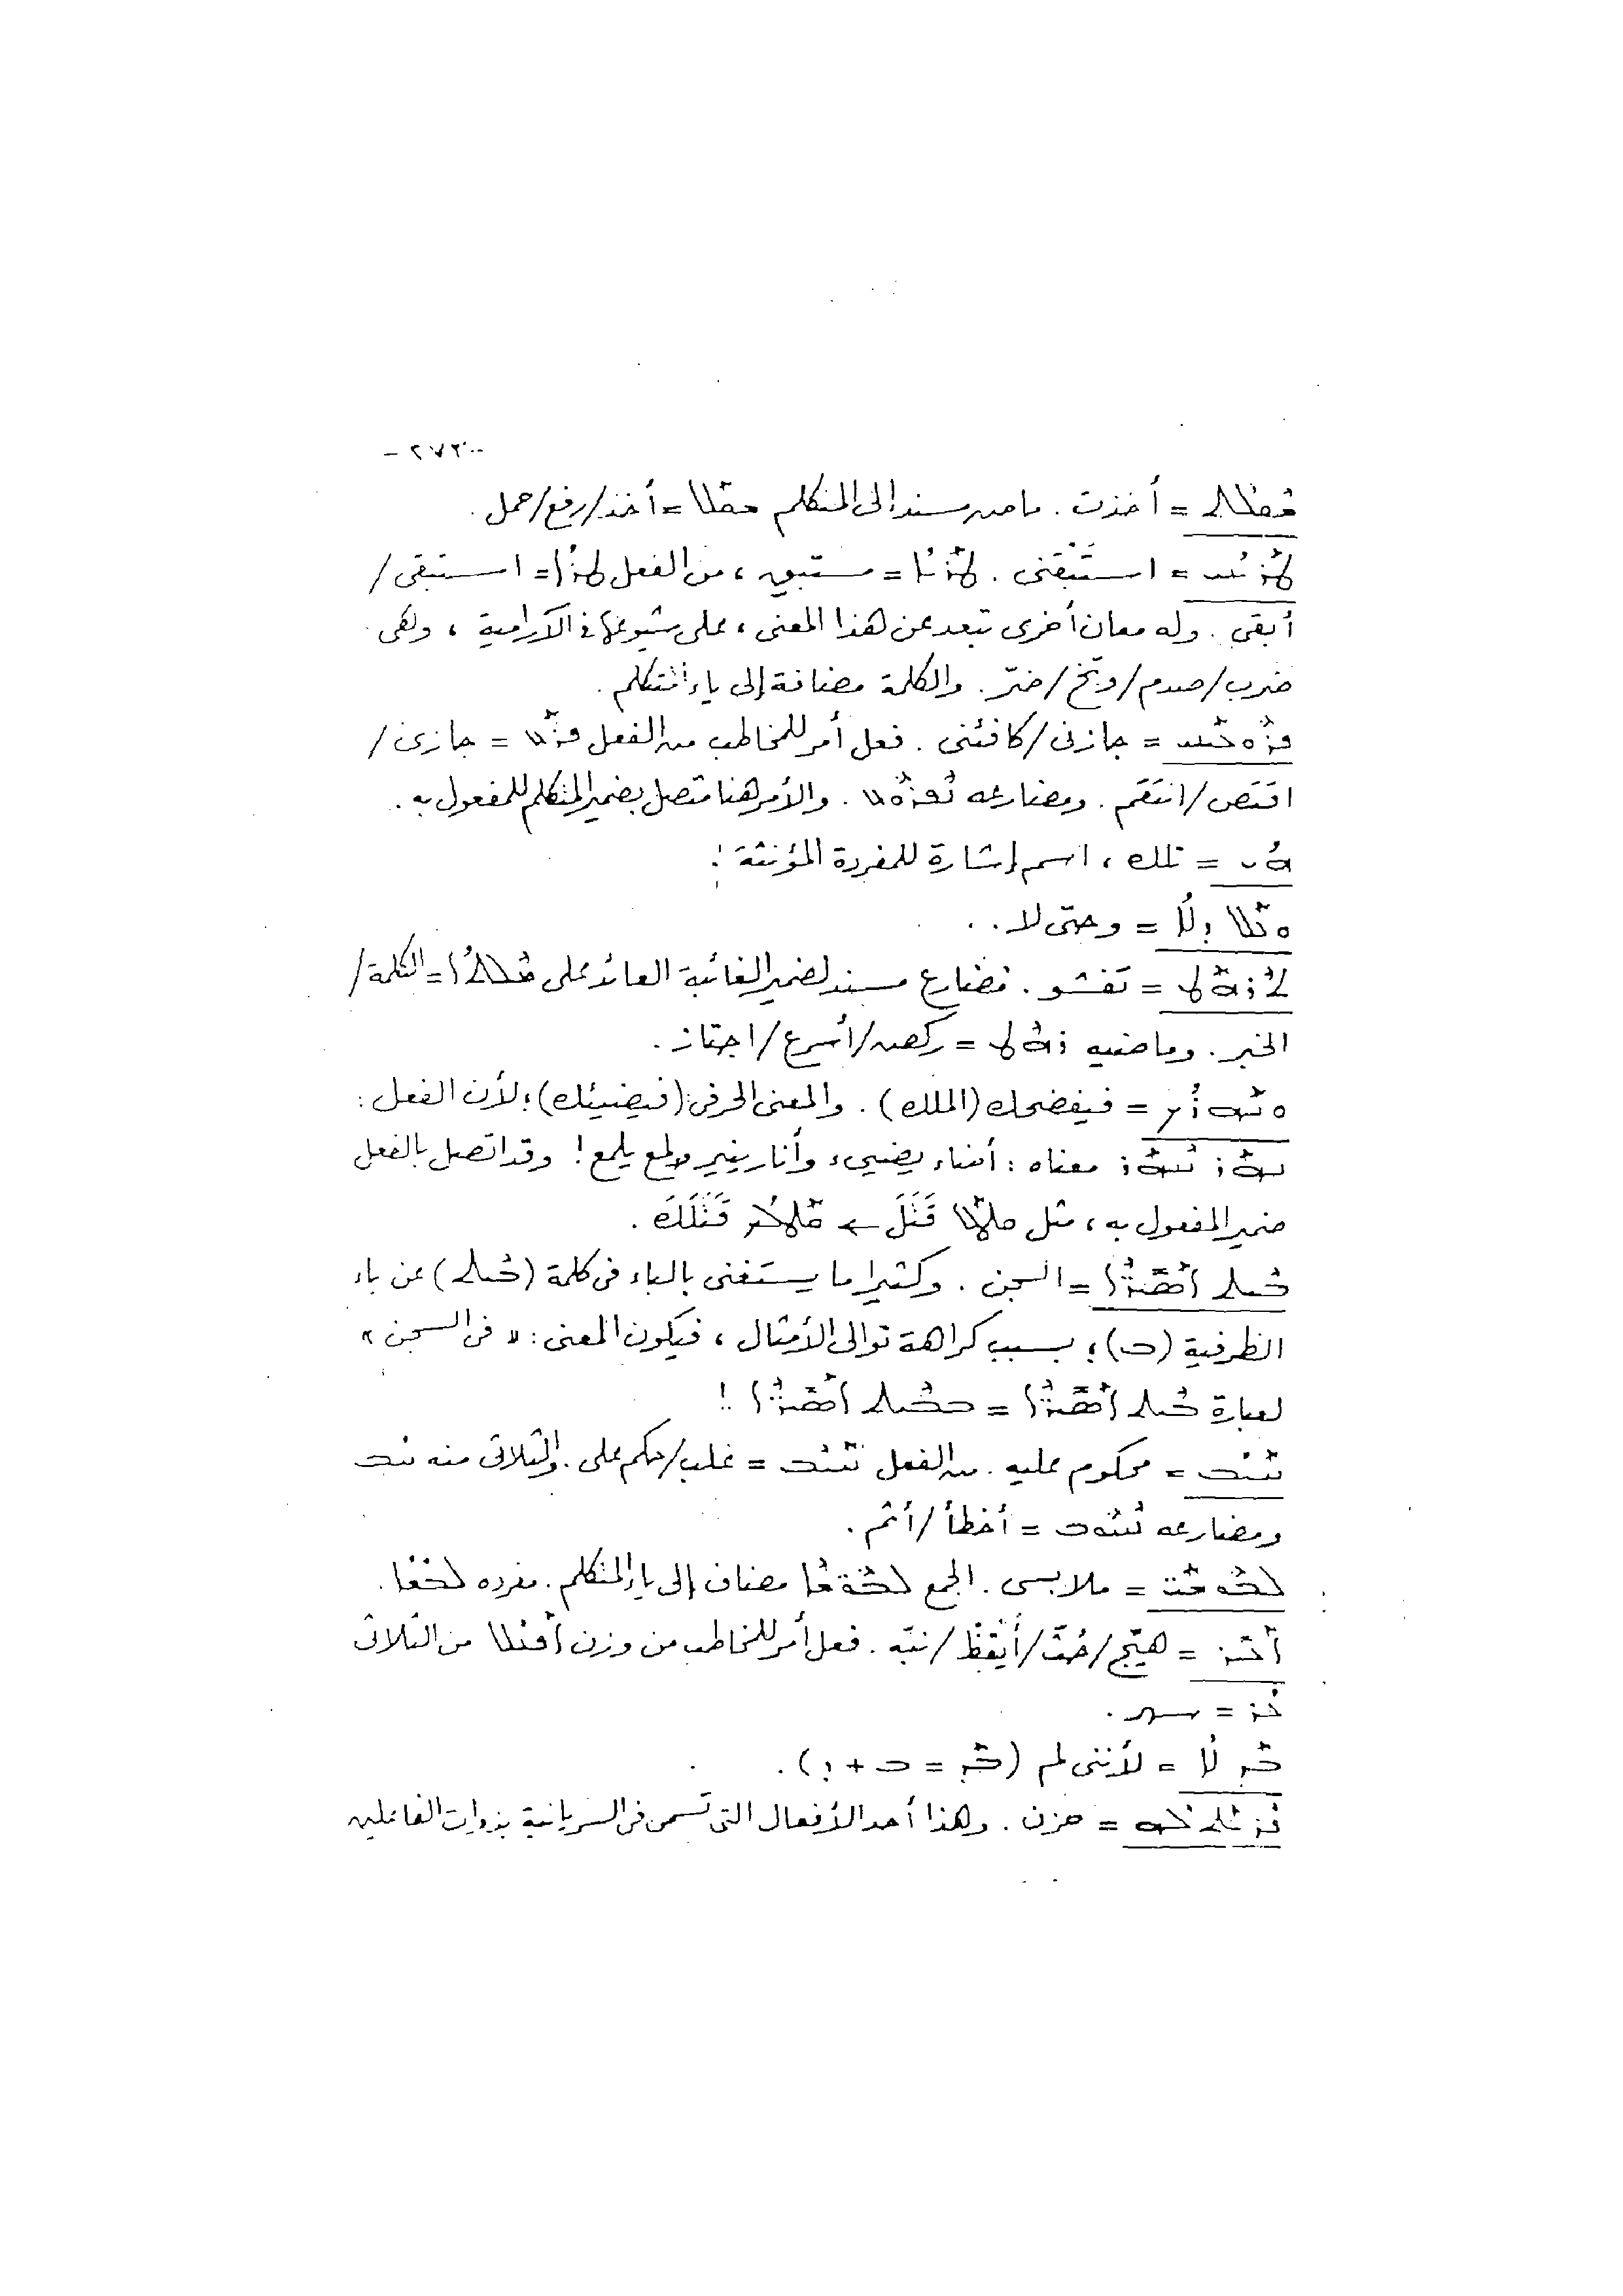 - ٢٧٢ -
ܫܩܠܬ = أخذت . ماضٍ مسند إلى المتكلم ܫܩܠ = أخذ/رفع/حمل .
= استَبْقَنى . = مستبقٍ ، من الفعل ܛܪܐ = استبقى /
أبقى . وله معان أخرى تبعد عن هذا المعنى ، على شيوعها فى الآرامية ، وهى
ضرب/صدم/وبّخ/ضرّ . والكلمة مضافة إلى ياء المتكلم .
= جازنى/كافئنى . فعل أمر للمخاطب من الفعل ܦܪܥ = جازى /
اقتَص/انتَقَم . ومضارعه ܢܦܪܘܥ . والأمر هنا متصل بضمير المتكلم للمفعول به .
ܗܝ = تلك ، اسم إشارة للمفردة المؤنثة :
ܘܥܠ ܕܠܐ = وحتى لا . .
ܬܪܗܛ = تفشو . مضارع مسند لضمير الغائبة العائد على ܡܠܬܐ = الكلمة/
الخبر . وماضيه ܪܗܛ = ركض/أسرع/اجتاز .
= فيفضحك (الملك) . والمعنى الحرفى : (فيضيئك) ؛ لأن الفعل :
معناه : أضاء يضىء وأنار ينير ولمع يلمع ! وقد اتصل بالفعل
ضمير المفعول به ، مثل ܩܛܠ قَتَلَ ← ܩܛܠܟ قَتَلَكَ .
ܒܝܬ ܐܣܝܪ̈ܐ = السجن . وكثيرا ما يستغنى بالباء فى كلمة (ܒܝܬ) عن باء
الظرفية (ܒ) ؛ بسبب كراهة توالى الأمثال ، فيكون المعنى : « فى السجن »
لعبارة ܒܝܬ ܐܣܝܪ̈ܐ = ܒܒܝܬ ܐܣܝܪ̈ܐ !!
ܚܝܒ = محكوم عليه . من الفعل ܚܝܒ = غلب/حكم على . والثلاثى منه ܚܒ
ومضارعه ܢܚܘܒ = أخطأ/أثم .
ܠܒܘܫܝ = ملابسى . الجمع ܠܒܘܫܐ مضاف إلى ياء المتكلم . مفرده ܠܒܫܐ .
ܐܥܝܪ = هيّج/حُثَّ/أَيْقِظْ/نبّه . فعل أمر للمخاطب من وزن ܐܦܥܠ من الثلاثى
ܥܪ = سهر .
ܒܕ ܠܐ = لأننى لم (ܒܕ = ܒ + ܕ) .
= حزن . وهذا أحد الأفعال التى تسمى فى السريانية بذوات الفاعلين